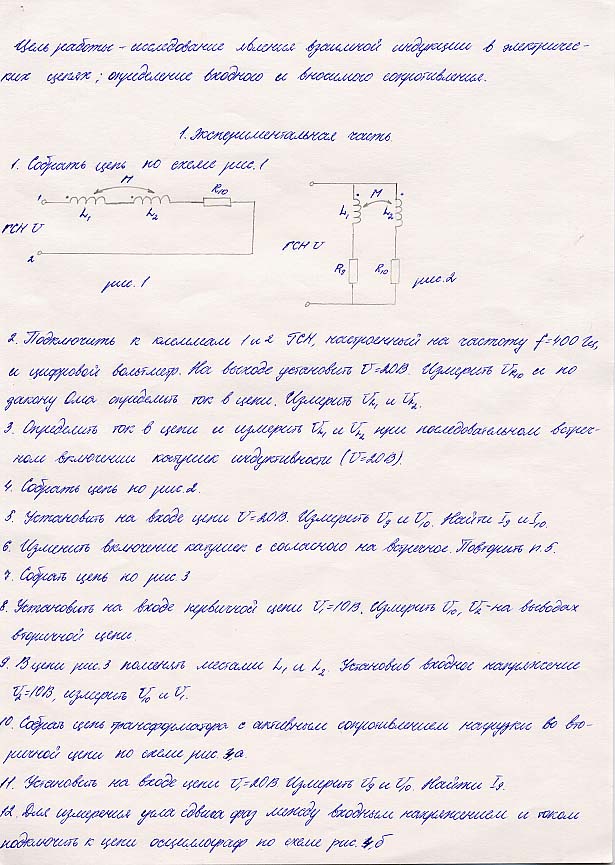 Цель работы – исследование явления взаимной индукции в электричес-
ких цепях; определение входного и вносимого сопротивления.
1. Экспериментальная часть.
1. Собрать цепь по схеме рис. 1
1 M R10
L1 L2
ГСН U
2
рис. 1
M
L1 L2
ГСН U
R9 R10
рис. 2
2. Подключить к клеммам 1 и 2 ГСН, настроенный на частоту f=400 Гц,
и цифровой вольтметр. На выходе установить U=20В. Измерить UR10 и по
закону Ома определить ток в цепи. Измерить UL1 и UL2.
3. Определить ток в цепи и измерить UL1 и UL2 при последовательном встреч-
ном включении катушек индуктивности (U=20В).
4. Собрать цепь по рис. 2.
5. Установить на входе цепи U=20В. Измерить U9 и U10. Найти I9 и I10.
6. Изменить включение катушек с согласного на встречное. Повторить п. 5.
7. Собрать цепь по рис. 3
8. Установить на входе первичной цепи U1=10В. Измерить U10, U2 – на выводах
вторичной цепи
9. В цепи рис. 3 поменять местами L1 и L2. Установив входное напряжение
U2=10В, измерить U10 и U1.
10. Собрать цепь трансформатора с активным сопротивлением нагрузки во вто-
ричной цепи по схеме рис. 4,а.
11. Установить на входе цепи U1=20В. Измерить U9 и U10. Найти I9.
12. Для измерения угла сдвига фаз между входным напряжением и током
подключить к цепи осциллограф по схеме рис. 4,б